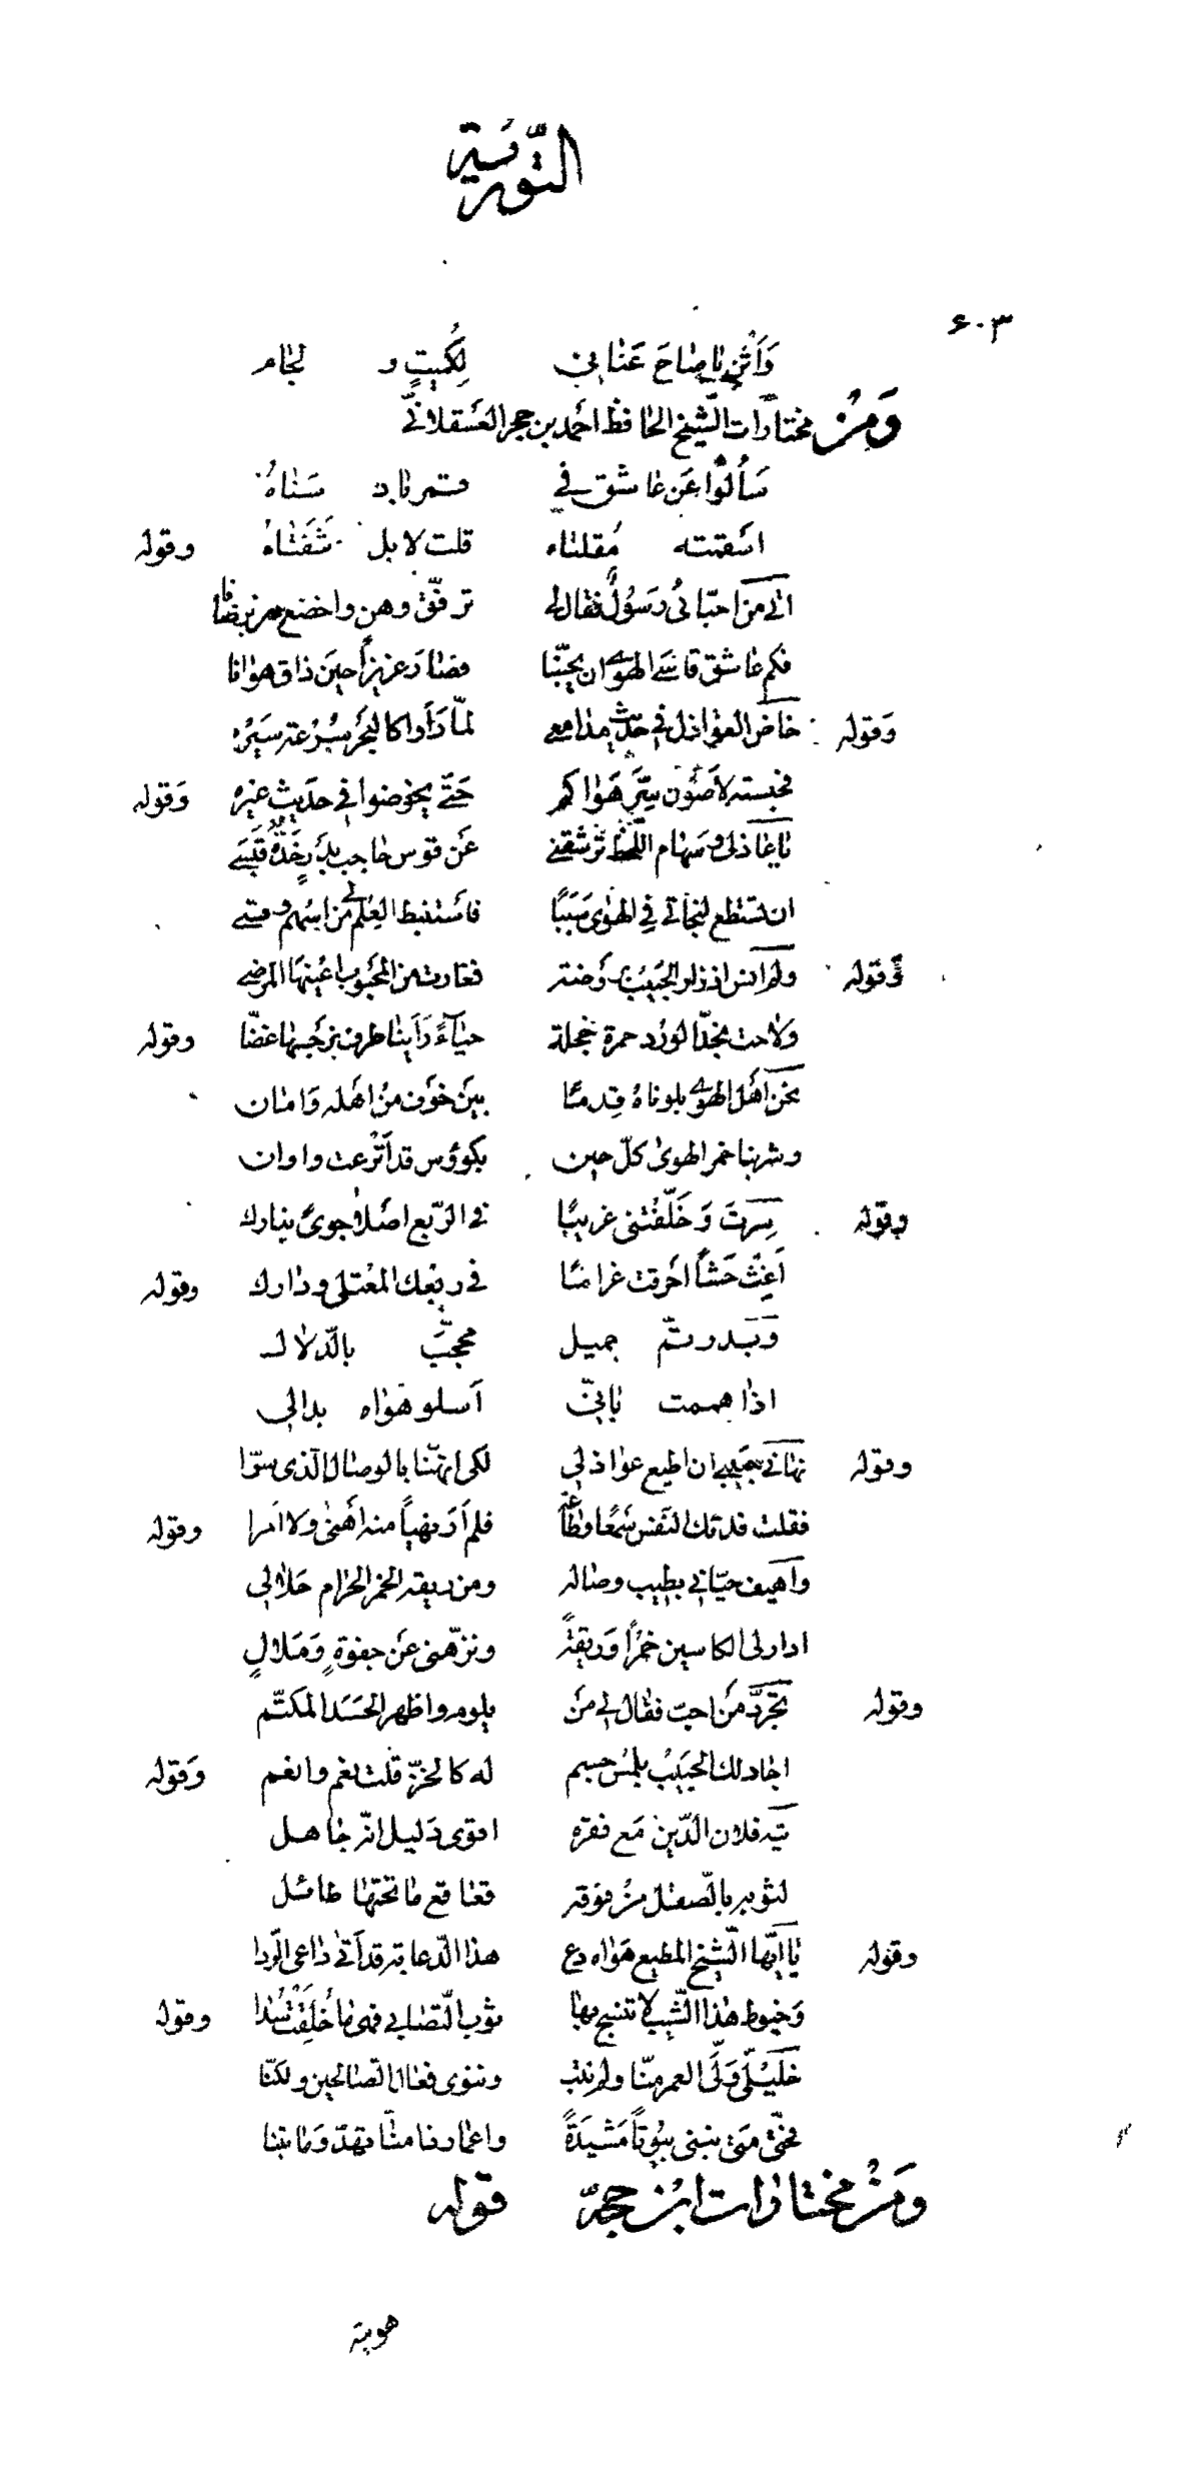 التّورية
٦٠٣
وَأَثْنِ يا صاحَ عَناني لِكُميتٍ و لجام
وَمِنْ مختارات الشّيخ الحافظ احمد بن حجر العَسقلانيّ
سَألوا عَن عاشق في قمر باد سَناهُ
اسَقمته مُقلتاه قلت لا بل شَفَتاهُ وقوله
اتى من احبّائي رَسُولٌ فقال لي ترفّق وهن واخضع تفز برضانا
فكم عاشق قاسَى الهوى ان يحبّنا فصار عزيزاً حينَ ذاق هوانا
وَقوله خاض العواذل في حَديث مدامعي لمّا رَأوا كالبَحر سُرْعة سَيْره
فحبسته لاصُون سِرَّ هَواكم حَتّى يخوضوا في حَديثٍ غيره وَقوله
يا عاذلي وسهام اللّحظ ترشقني عَن قوس حاجب بَدْرٍ خَدّهُ قَبَسي
ان تستطع لنجاتي في الهَوى سَبَبًا فاستنبط العِلم لي مِن اسْهم وقسي
وَقوله ولم انس اذ زار الحَبيبُ بروضة فغارت من المحبوب اعْينها المرضى
ولاحت بخدّ الورد حمرة خجلة حياءً ورَأينا طرف نرجسها غضّا وقوله
نحن اهَل الهوى بلوناهُ قِدمًا بينَ خوَف منْ اهَله وَامان
وشربنا خمر الهوى كلّ حين بكوؤس قد أتْرعت واوان
وقوله سِرتَ وَخَلّفْتني غريبًا في الرّبع اصَلى جوىً بنارك
أَغِثْ حَشاً احَرقت غرامًا في ربعك المعْتلى ودارك وقوله
وَبَدر تمّ جميل محجّبٌ بالدّلال
اذا هممت بانّي أسلو هَواه بدا لي
وقوله نهاني حبيبي ان اطيع عواذلي لكي اتهنّا بالوصال الّذي سرّا
فقلت فدتك النفس سَمْعًا وطَاعَةً فلم أَر نهياً منه اهَنى ولا امَرا وقوله
وأهيف حيّاني بطيب وصاله ومن ريقه الخمر الحرام حَلا لي
ادار لي الكاسين خمْراً وَريقةً ونزّهني عَن جفوةٍ وَمَلالٍ
وقوله تجَرّدَ مَن احبّ فقال لي مَن يلوم واظهر الحَسَد المكتّم
اجاد لك الحَبَيبُ بلمَس جسم له كالخزّ قلت نعم وانعم وَقوله
تيه فلان الدّين مَع فقره اقوى دَليل انّه جاهل
لثوبه بالصقل منْ فوقه قعاقع ما تحتها طائل
وقوله يا ايّها الشّيخ المطيع هَواه دع هذا الدّعابة قد أتى داعي الرّدا
وَخيوط هذا الشّيب لا تنسج بها ثوب التّصابي فهي ما خُلِقَتْ سُدا وقوله
خليلَيَّ وَلَّى العمر مِنّا ولم نتب وننوى فعال الصّالحين ولكنّا
فحتّى مَتى نبني بيُوتاً مَشيدَةً واعمارنا منّا تهدّ وَما تبنا
وَمنْ مختارات ابن حجرّ قوله
هويته